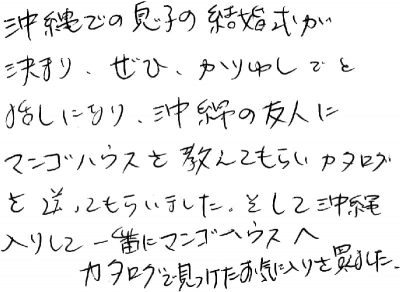 沖縄での息子の結婚式が
決まり、ぜひ、かりゆしでと
話しになり、沖縄の友人に
マンゴハウスを教えてもらいカタログ
を送ってもらいました。そして沖縄
入りして一番にマンゴーハウスへ
カタログで見つけたお気に入りを買いました。